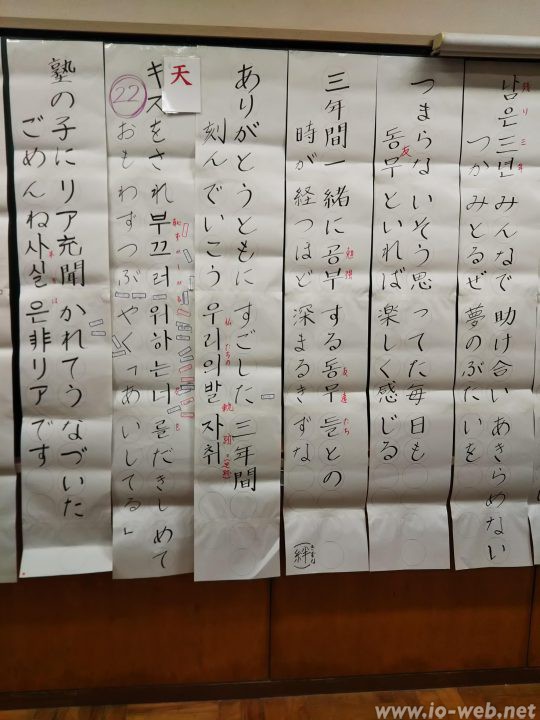 남은三년 みんなで 助け合い あきらめない
残り三年
つかみとるぜ 夢のぶたいを
つまらない そう思ってた 毎日も
동무といれば 楽しく感じる
友
三年間 一緒に공부する동무들との
勉強
友達たち
時が経つほど 深まるきずな
(絆)
ありがとう ともにすごした 三年間
刻んでいこう 우리의발자취
私たちの
軌跡
天
22
キスをされ 부끄러위하는너をだきしめて
おもわずつぶやく「あいしてる」
塾の子に リア充聞かれて うなづいた
ごめんね사실은非リアです
は
www.io-web.net